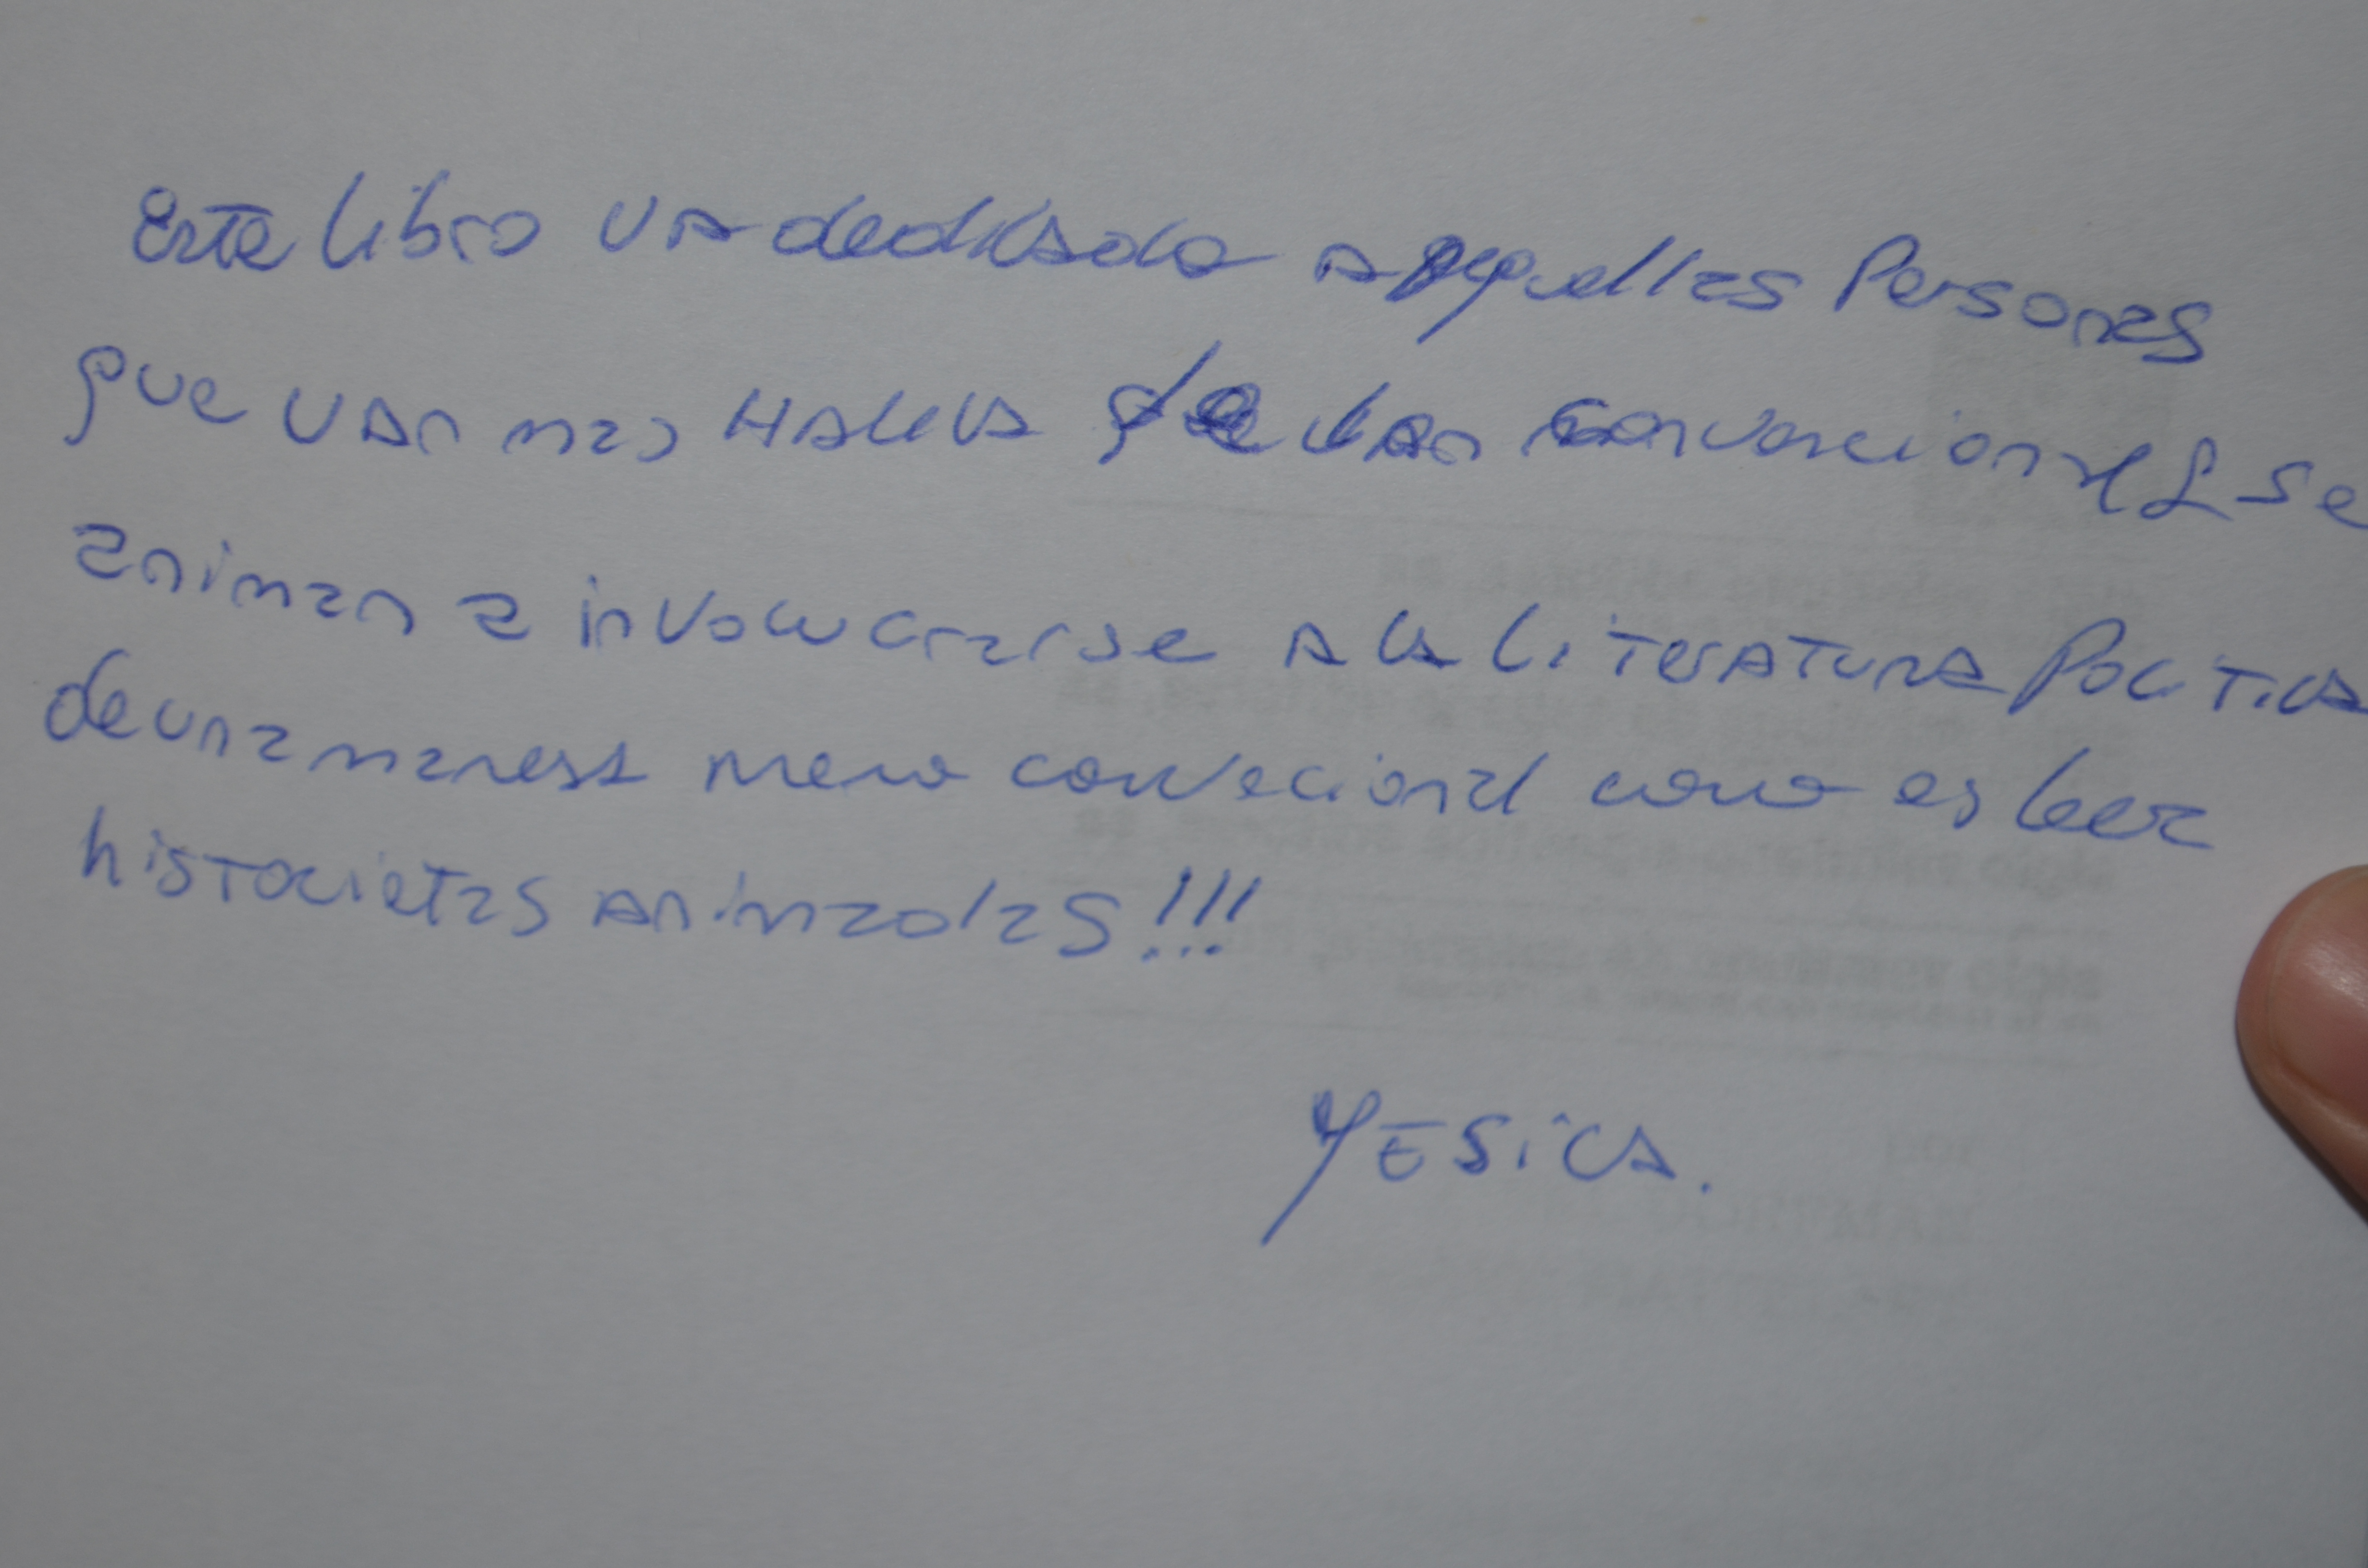 Este libro va dedicado a aquellas Personas
que van mas HALLA de lan convencional & se
animan a involucrarse A la LiTERATURA POLiTica
de una manera meno convecional como es leer
historietas animadas!!!
YESiCA.